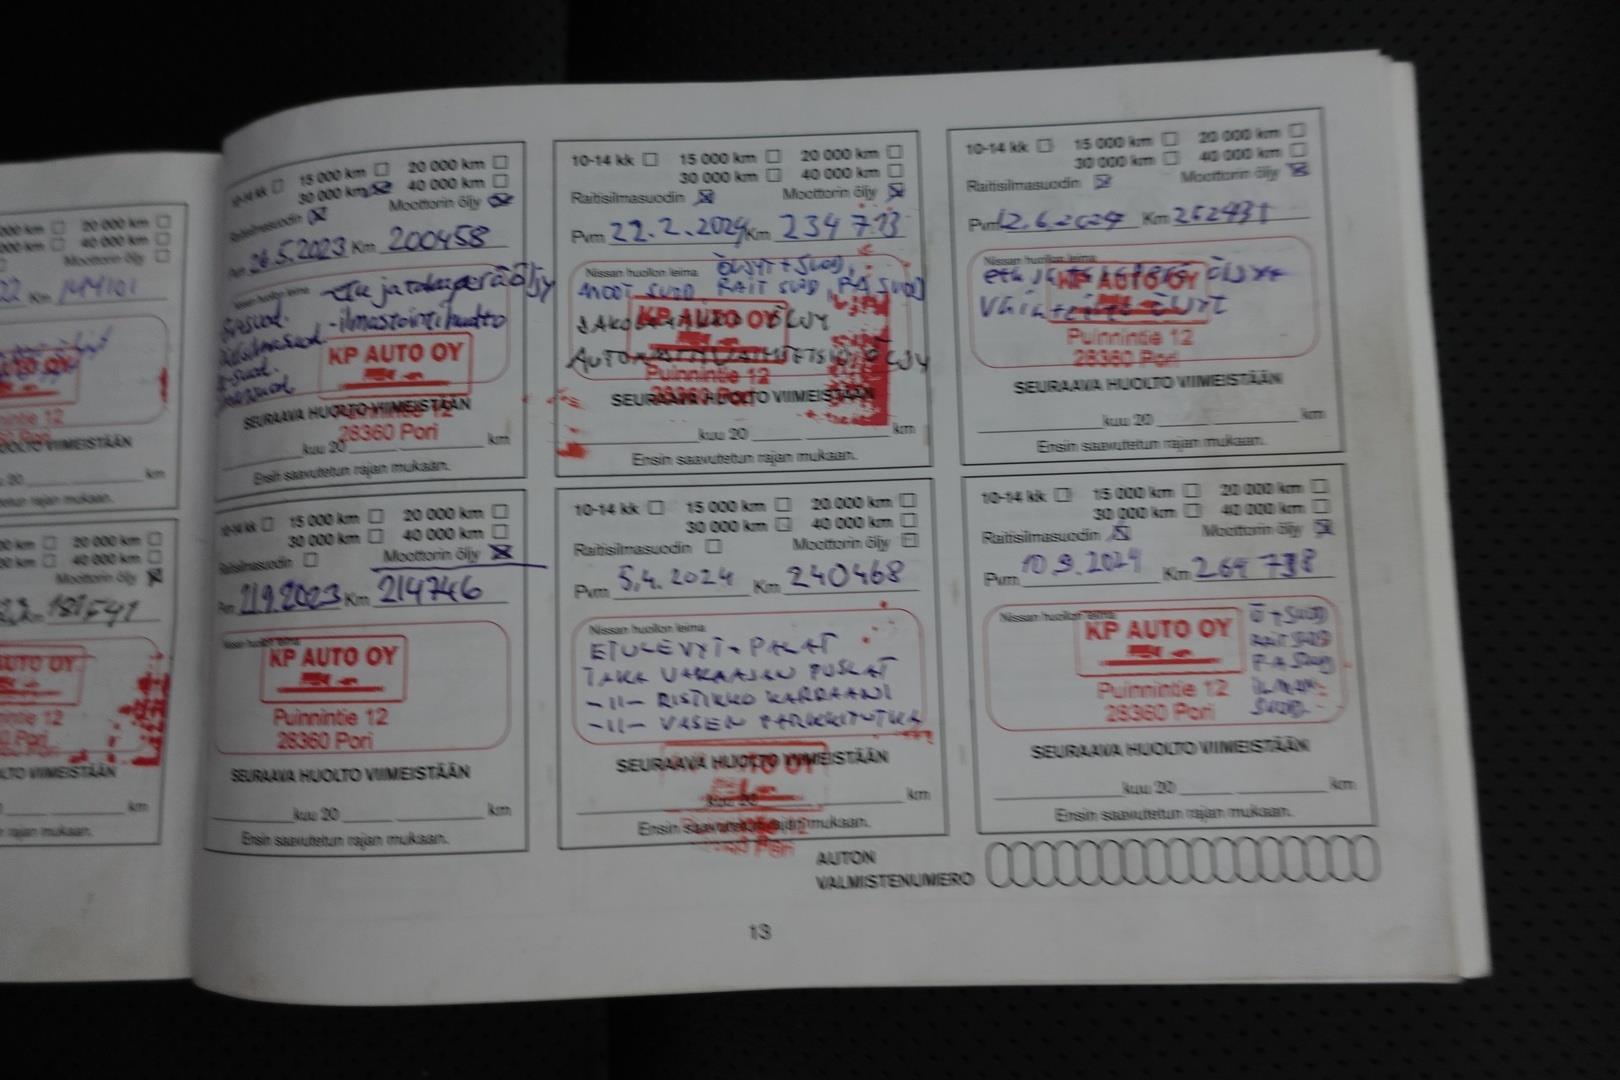 20 000 km
40 000 km
Moottorin öljy
Km 144101
OOLTO VIIMEISTÄÄN
km
rajan mukaan.
20 000 km
40 000 km
Moottorin öljy
181541
AUTO OY
LTO VIIMEISTÄÄN
km
rajan mukaan.
10-14 kk 15 000 km 20 000 km
30 000 km 40 000 km
Raitisilmasuodin Moottorin öljy
Pvm 26.5.2023 Km 200458
Nissan huollon leima
-etu ja takaperäöljy
-ilmastointihuolto
KP AUTO OY
SEURAAVA HUOLTO VIIMEISTÄÄN
28360 Pori
kuu 20 km
Ensin saavutetun rajan mukaan.
10-14 kk 15 000 km 20 000 km
30 000 km 40 000 km
Raitisilmasuodin Moottorin öljy
Pvm 22.2.2024 Km 234713
Nissan huollon leima ÖLJYT + SUOD,
MOOT SUOD, RAIT SUOD, PA SUOD
KP AUTO OY
ÖLJY
Puinnintie 12
SEURAAVA HUOLTO VIIMEISTÄÄN
kuu 20 km
Ensin saavutetun rajan mukaan.
10-14 kk 15 000 km 20 000 km
30 000 km 40 000 km
Raitisilmasuodin Moottorin öljy
Pvm 12.6.2024 Km
Nissan huollon leima
etu ja ÖLJYT
KP AUTO OY
ÖLJYT
Puinnintie 12
28360 Pori
SEURAAVA HUOLTO VIIMEISTÄÄN
kuu 20 km
Ensin saavutetun rajan mukaan.
10-14 kk 15 000 km 20 000 km
30 000 km 40 000 km
Raitisilmasuodin Moottorin öljy
Pvm 21.9.2023 Km 214746
Nissan huollon leima
KP AUTO OY
Puinnintie 12
28360 Pori
SEURAAVA HUOLTO VIIMEISTÄÄN
kuu 20 km
Ensin saavutetun rajan mukaan.
10-14 kk 15 000 km 20 000 km
30 000 km 40 000 km
Raitisilmasuodin Moottorin öljy
Pvm 5.4.2024 Km 240468
Nissan huollon leima
ETULEVYT + PALAT
TAKA VAKAAJAN PUSLAT
-II- RISTIKKO KARDAANI
-II- VASEN PARKKITUTKA
SEURAAVA HUOLTO VIIMEISTÄÄN
kuu 20 km
Ensin saavutetun rajan mukaan.
10-14 kk 15 000 km 20 000 km
30 000 km 40 000 km
Raitisilmasuodin Moottorin öljy
Pvm 10.9.2024 Km 269738
Nissan huollon leima
KP AUTO OY
Puinnintie 12
28360 Pori
Ö + SUOD
RAIT SUOD
PA SUOD
ILMAN-
SUOD.
SEURAAVA HUOLTO VIIMEISTÄÄN
kuu 20 km
Ensin saavutetun rajan mukaan.
AUTON
VALMISTENUMERO
13